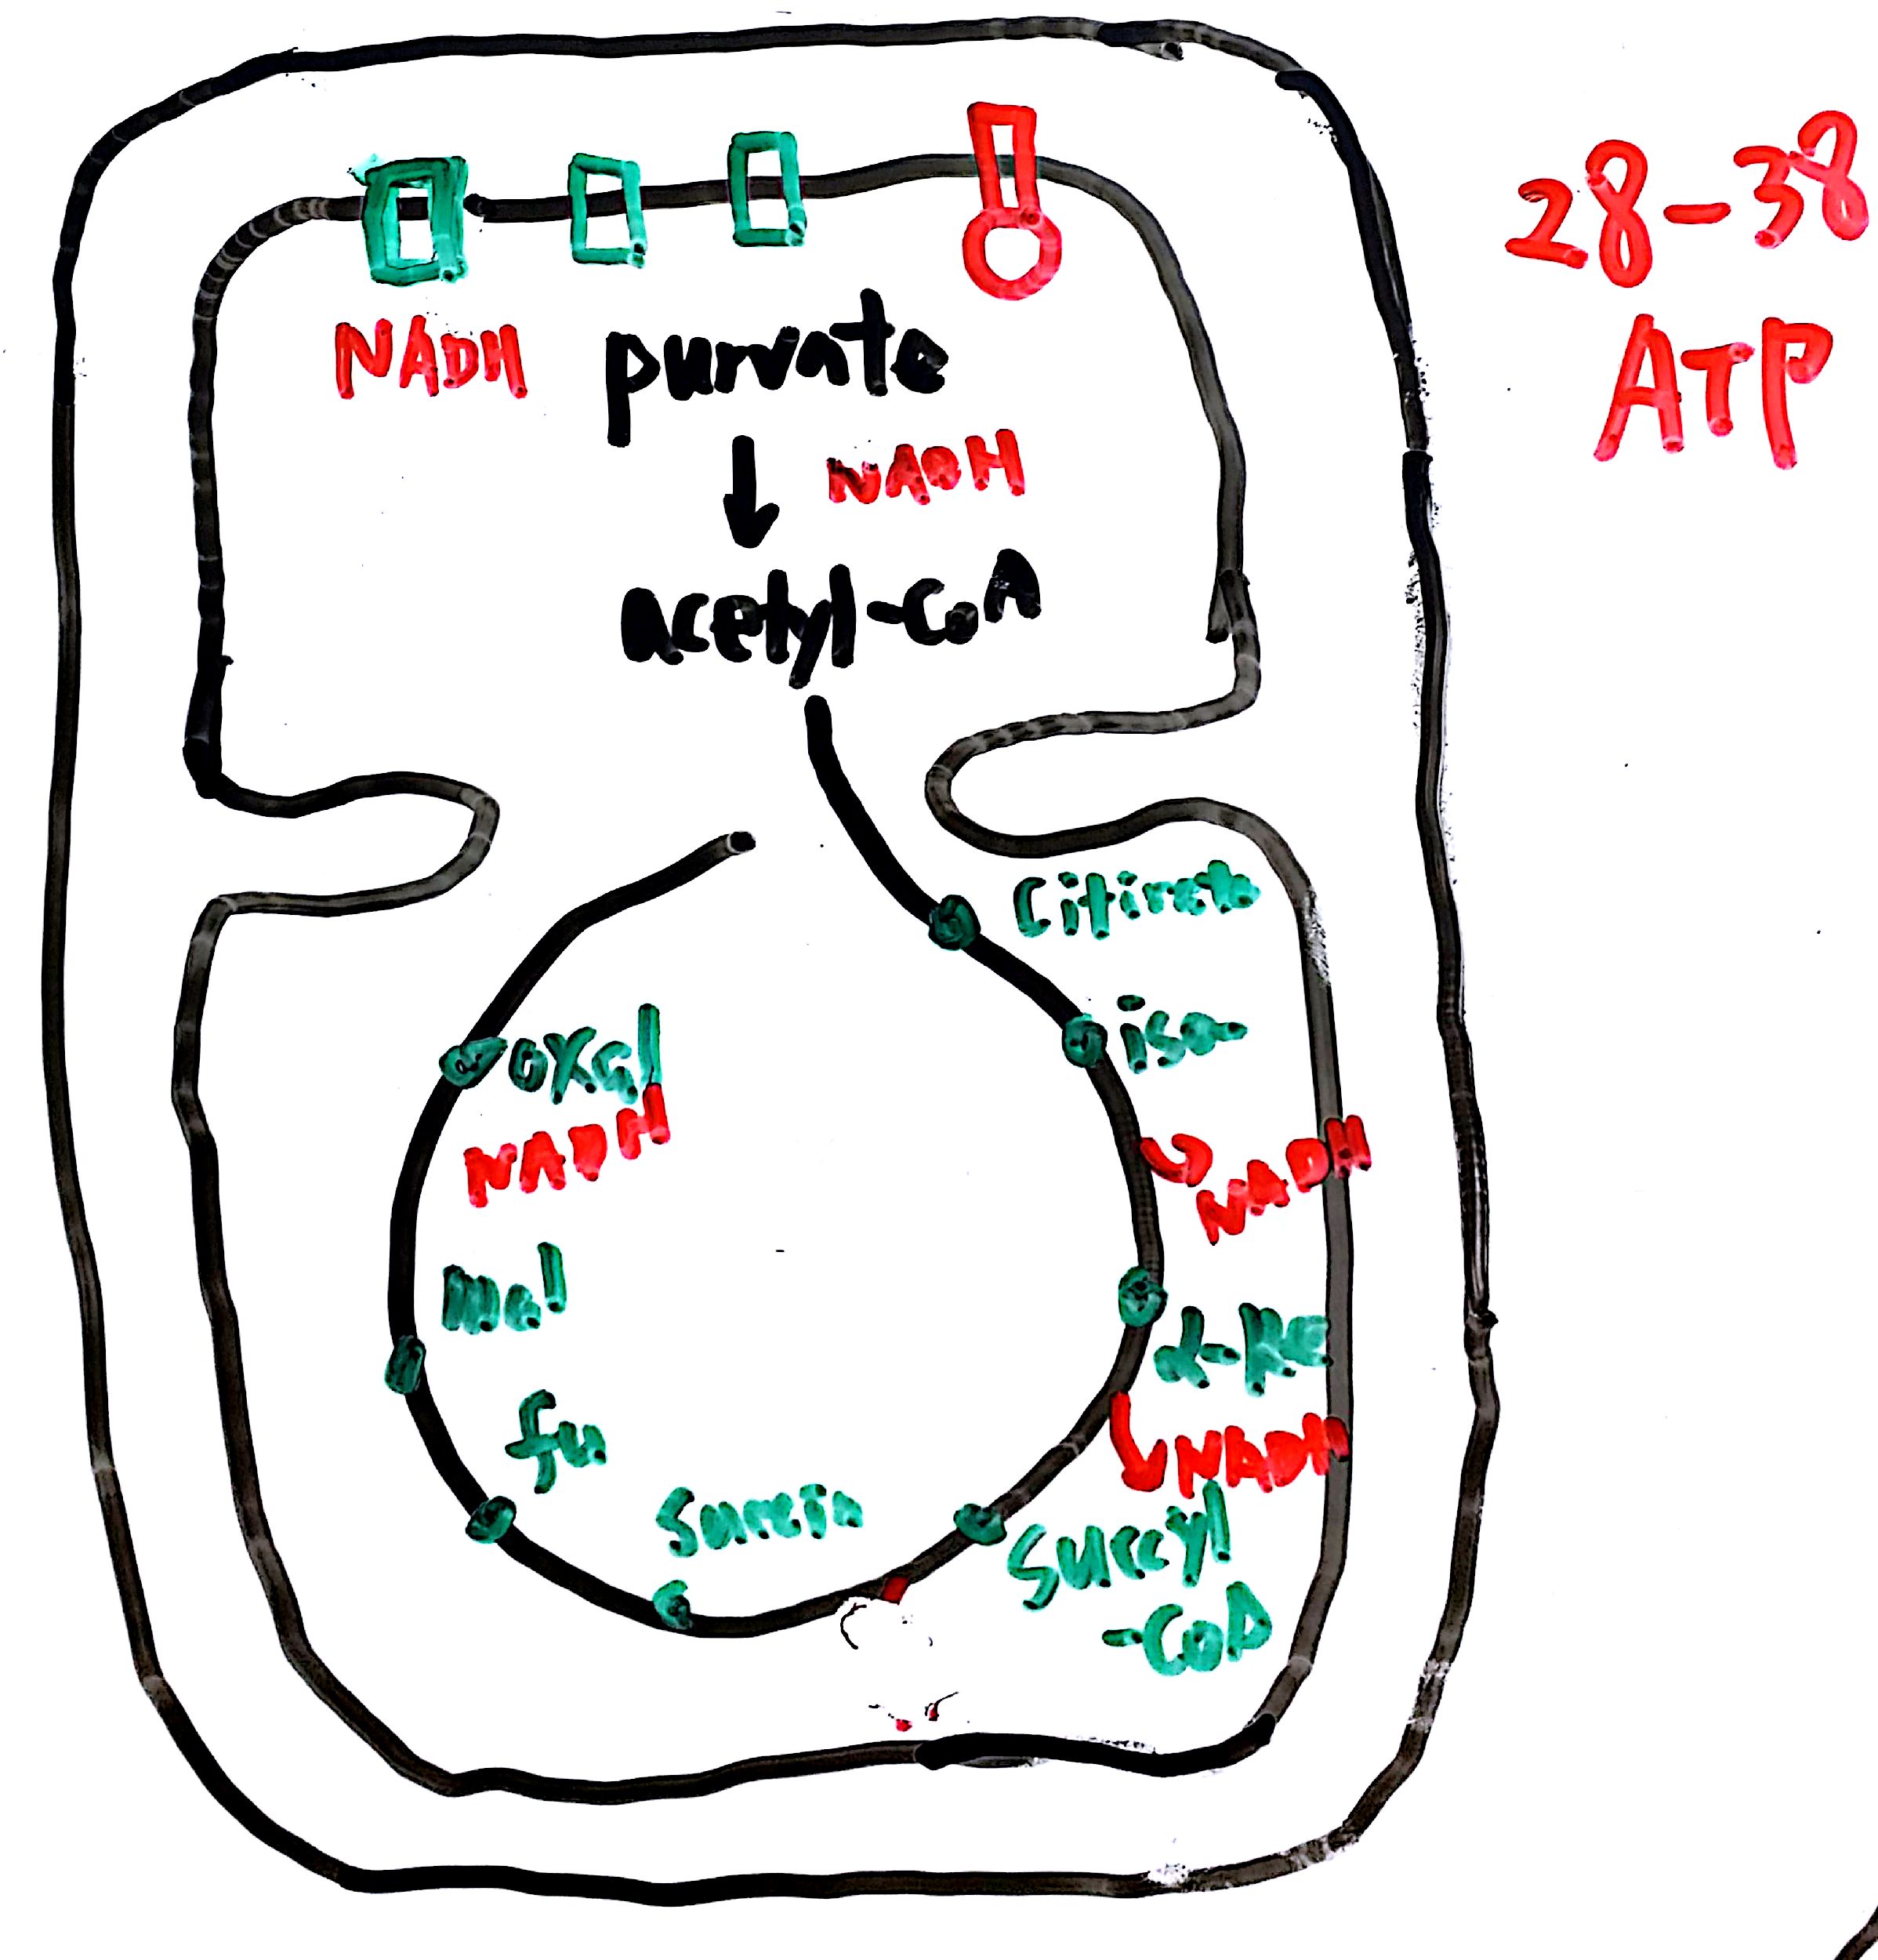 28-38
ATP
NADH
purvate
NADH
acetyl-CoA
Citirate
iso-
oxal
NADH
NADH
Mal
α-KG
fu
NADH
Succin
Succyl
-CoA